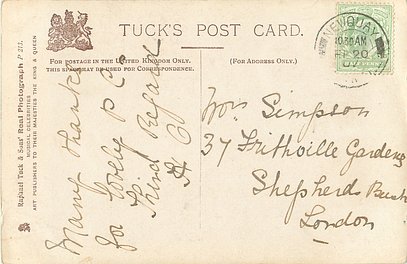 TUCK'S POST CARD.
FOR POSTAGE IN THE UNITED KINGDOM ONLY.
THIS SPACE MAY BE USED FOR CORRESPONDENCE.
(FOR ADDRESS ONLY.)
Raphael Tuck & Sons' Real Photograph P 217.
MUSICAL CELEBRITIES
ART PUBLISHERS TO THEIR MAJESTIES THE KING & QUEEN
Many thanks
for lovely P C
Kind Regards
NEWQUAY
10.30AM
20
Simpson
37 Frithville Gardens
Shepherds Bush
London